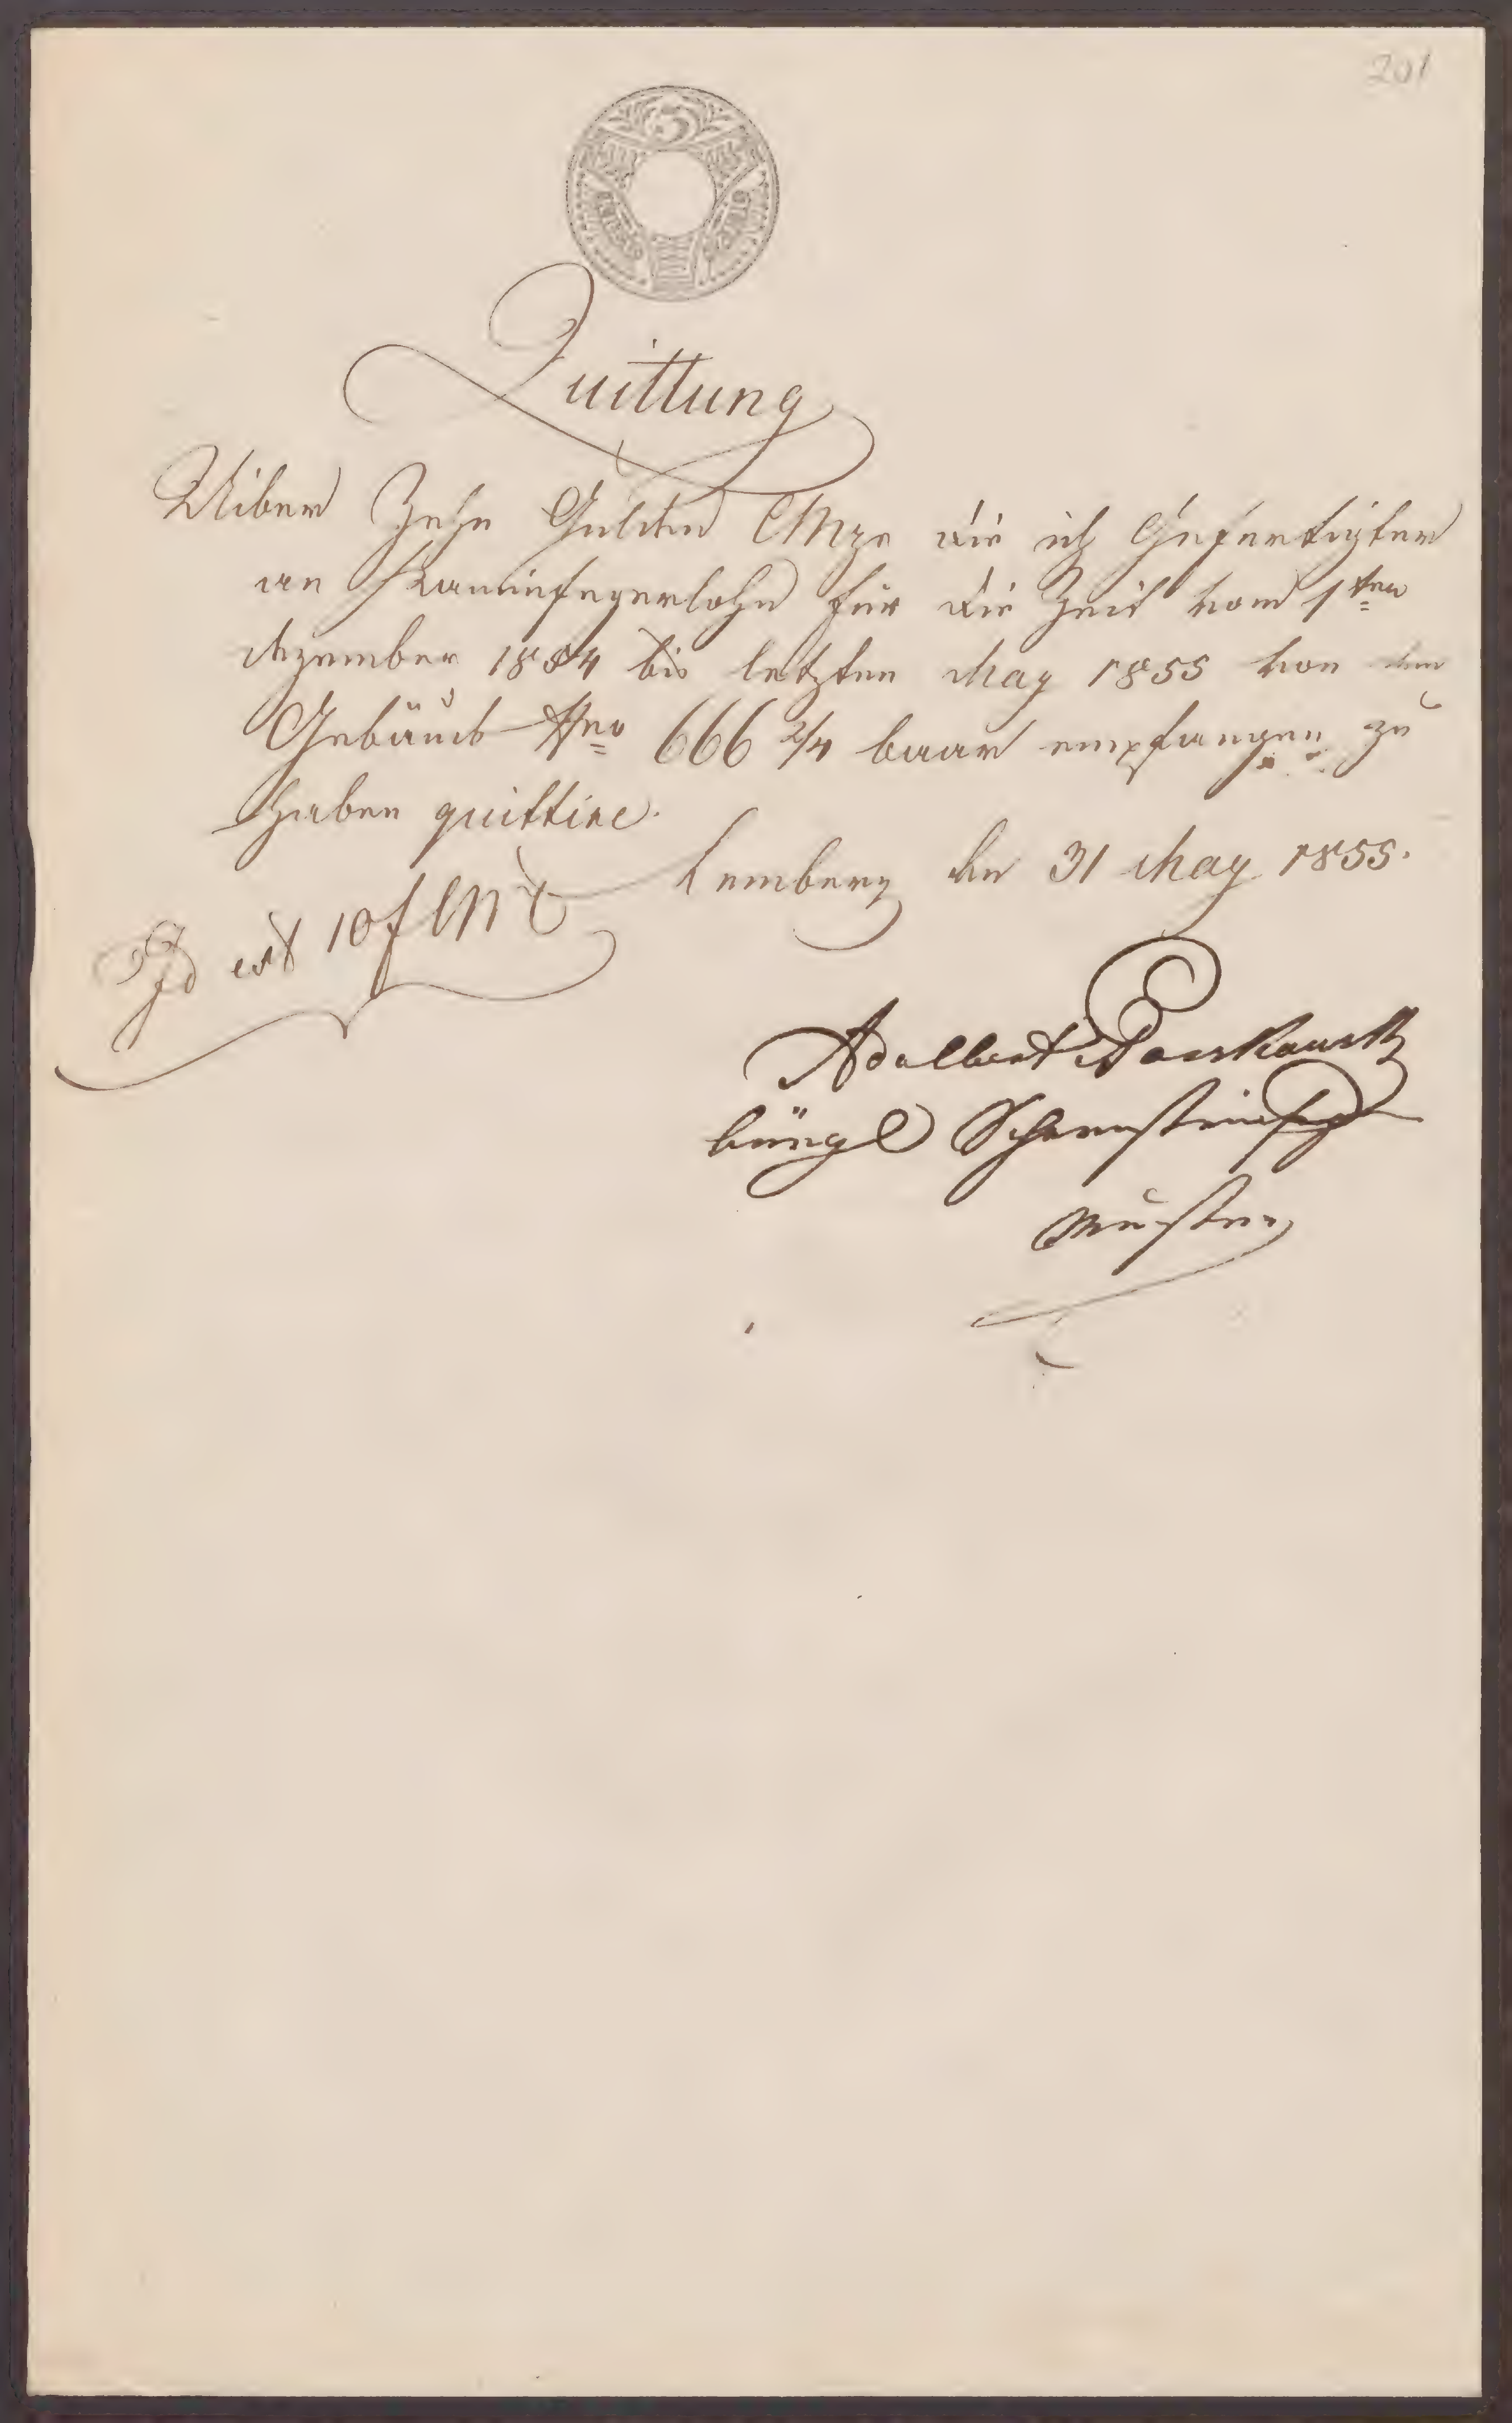 201
5
Quittung
Uiber Zehn Gulden CMze die ich Gefertigter
an Kaminfegerlohn für die Zeit vom 1ten
Dezember 1854 bis letzten May 1855 von dem
Gebäude Nro 666 2/4 baar empfangen zu
haben quittire.
Lemberg den 31 May 1855.
Id est 10 f CMz
Adalbert
bürgl Schornsteinfeger
Meister